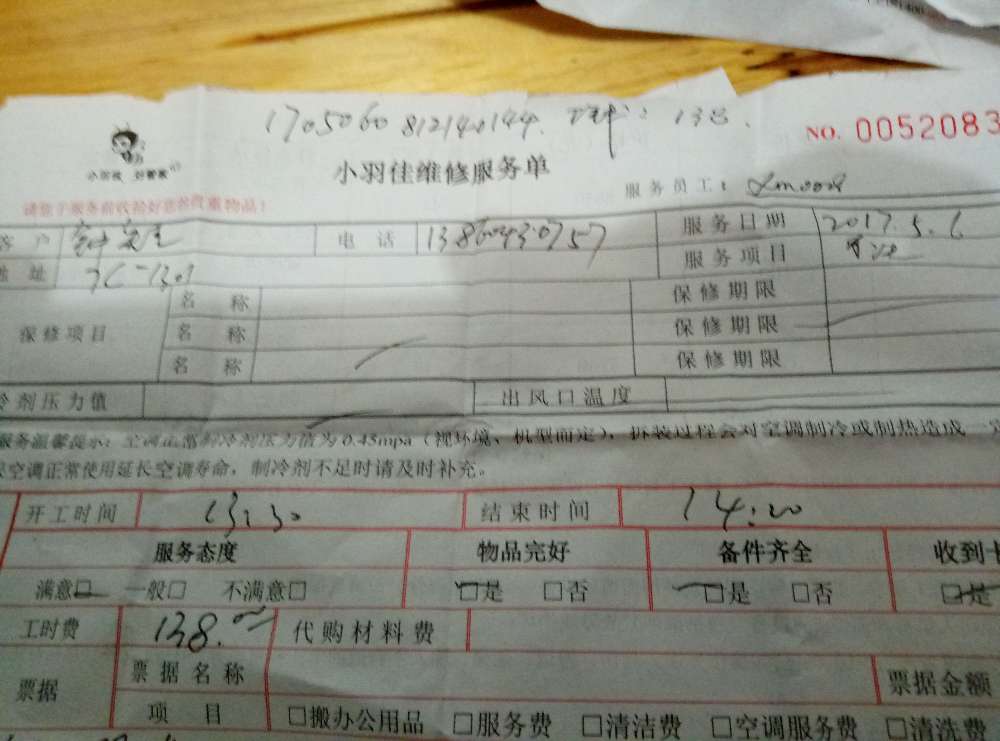 170506081214140144. 138.
NO. 0052083
小羽佳 好管家
小羽佳维修服务单
服务员工：
请您于服务前收拾好您的贵重物品！
客户 电话 13860430757 服务日期 2017.5.6
地址 7C-1301 服务项目
保修项目 名称 保修期限
名称 保修期限
名称 保修期限
冷剂压力值 出风口温度
服务温馨提示：空调正常制冷剂压力值为0.45mpa（视环境、机型而定），拆装过程会对空调制冷或制热造成一定
空调正常使用延长空调寿命，制冷剂不足时请及时补充。
开工时间 13:30 结束时间 14:20
服务态度 物品完好 备件齐全 收到卡
满意□ 一般□ 不满意□ □是 □否 □是 □否 □是
工时费 138.00 代购材料费
票据 票据名称 票据金额
项目 □搬办公用品 □服务费 □清洁费 □空调服务费 □清洗费